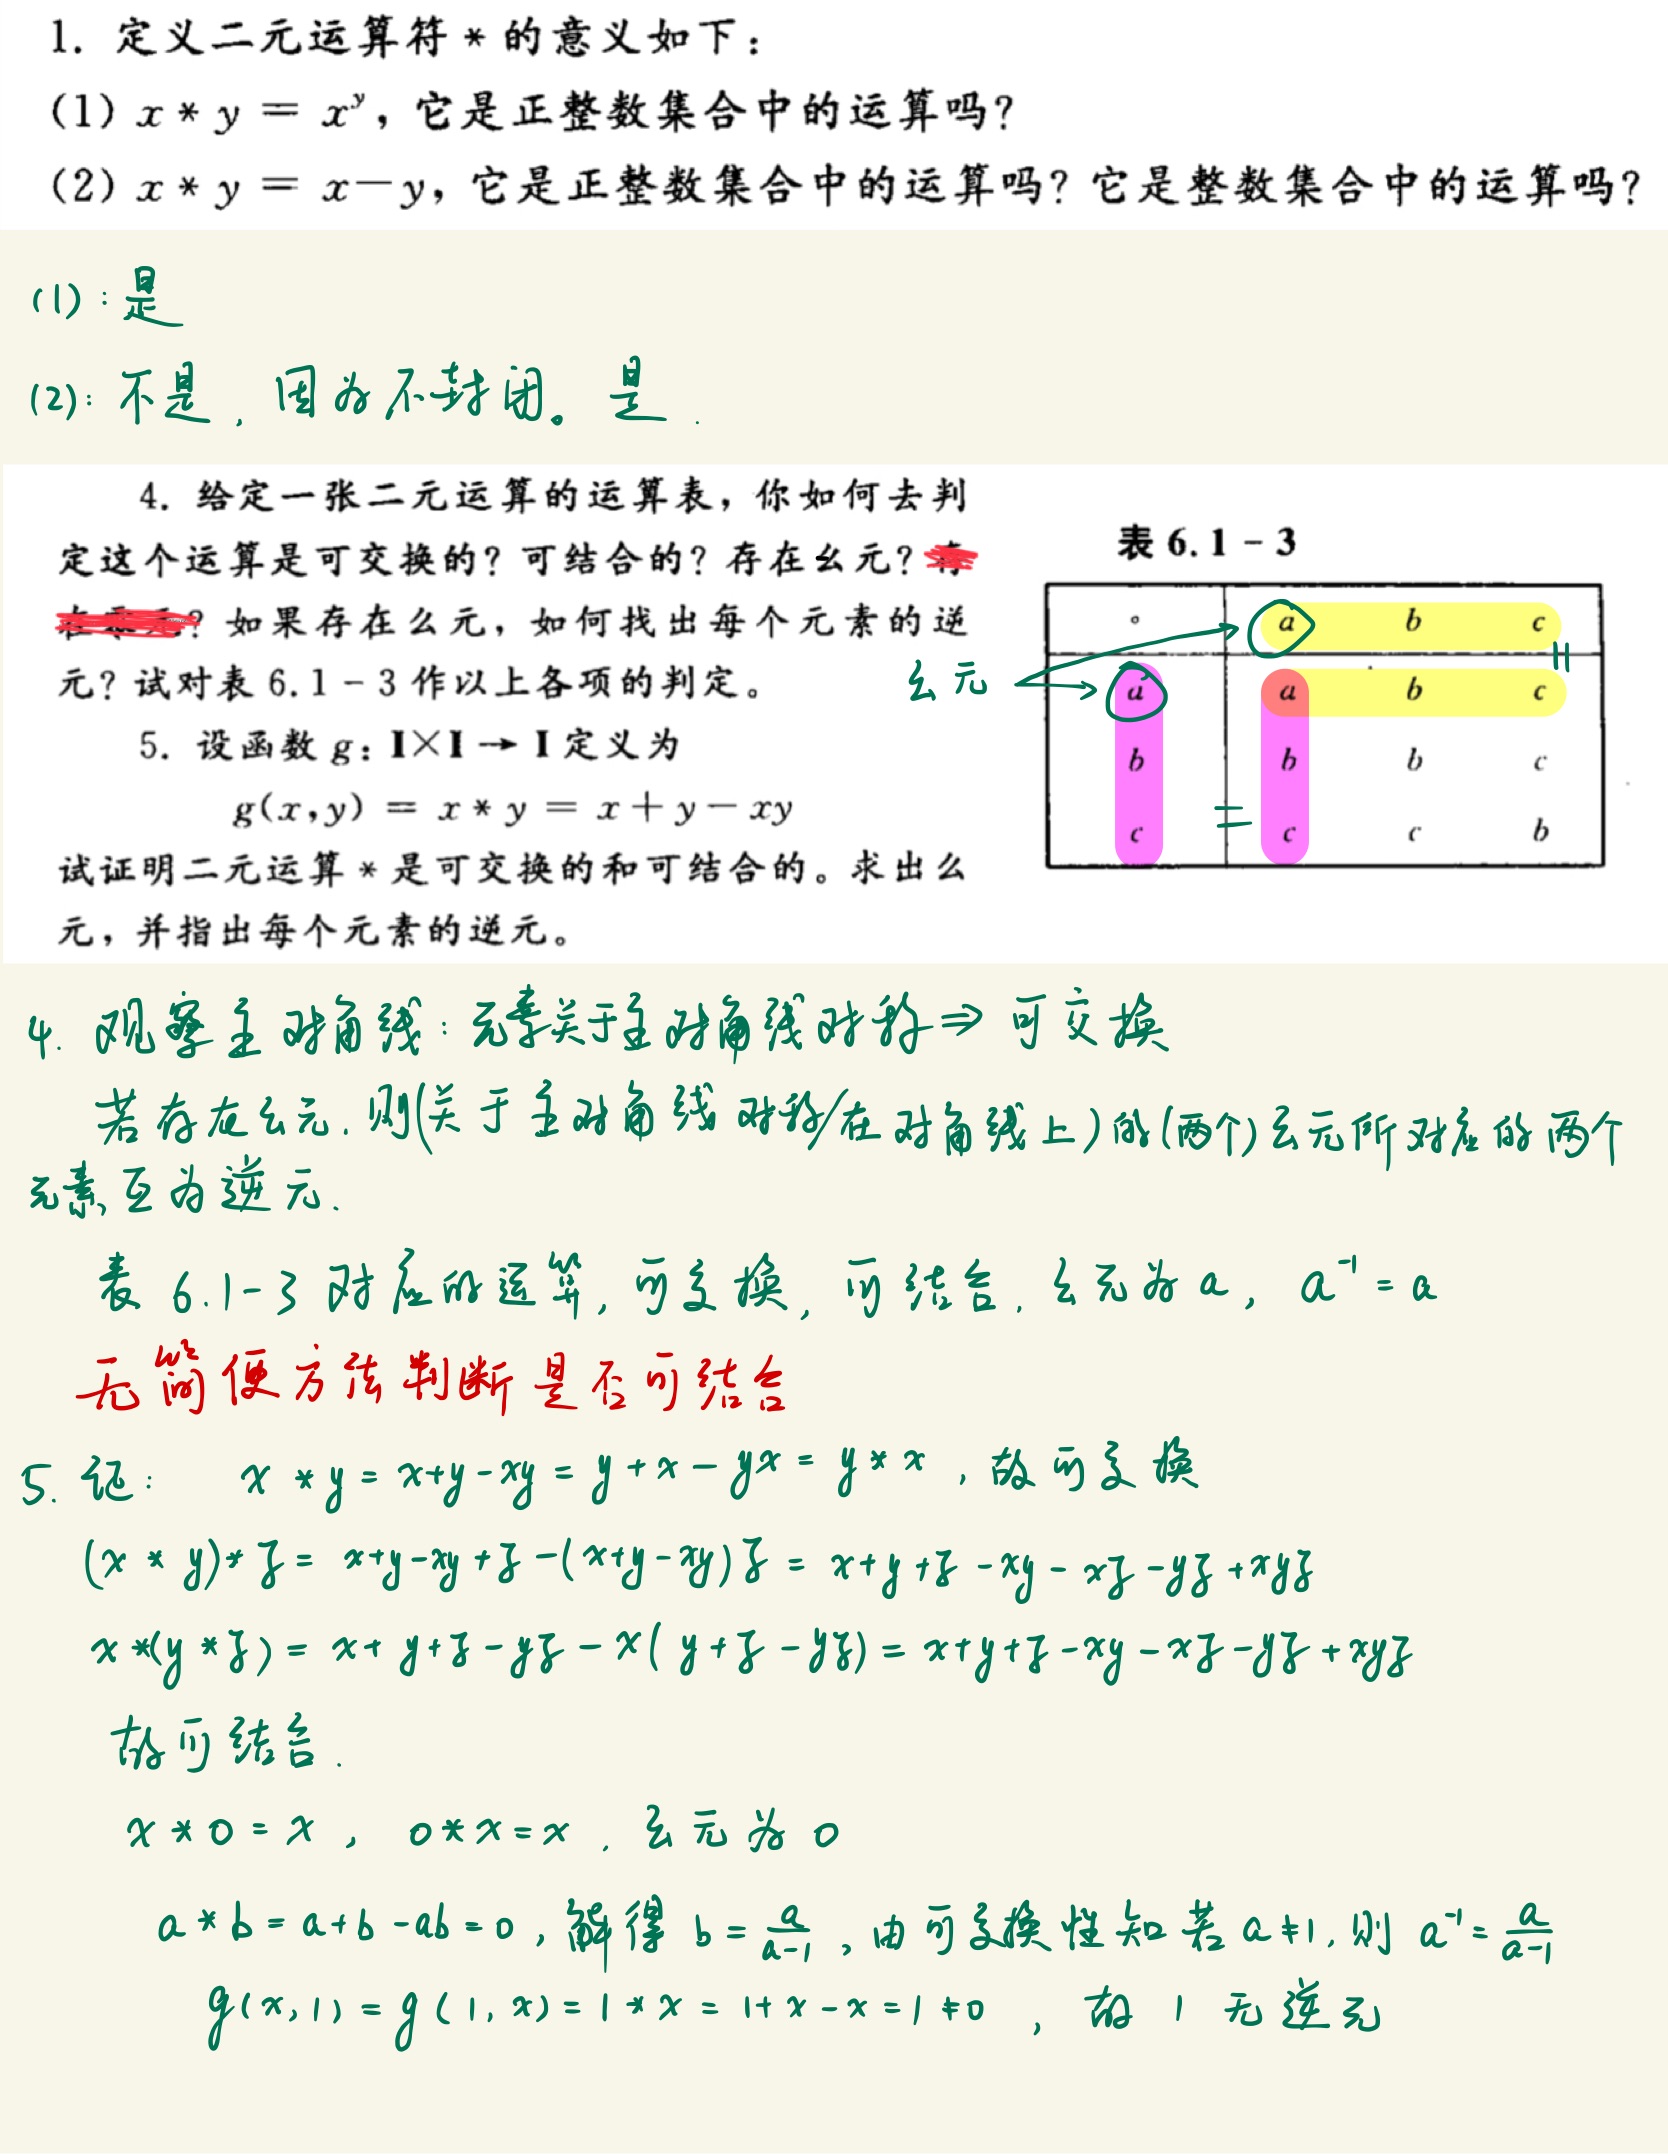 1. 定义二元运算符 * 的意义如下：
(1) x * y = x^y，它是正整数集合中的运算吗？
(2) x * y = x－y，它是正整数集合中的运算吗？它是整数集合中的运算吗？
(1)：是
(2)：不是，因为不封闭。是.
4. 给定一张二元运算的运算表，你如何去判
定这个运算是可交换的？可结合的？存在幺元？
？如果存在么元，如何找出每个元素的逆
元？试对表 6.1－3 作以上各项的判定。
5. 设函数 g：I×I → I 定义为
g(x,y) = x * y = x＋y－xy
试证明二元运算 * 是可交换的和可结合的。求出么
元，并指出每个元素的逆元。
表 6.1－3
∘ a b c
a a b c
b b b c
c c c b
幺元
=
=
4. 观察主对角线：元素关于主对角线对称 ⇒ 可交换
若存在幺元.则(关于主对角线对称/在对角线上)的(两个)幺元所对应的两个
元素互为逆元.
表 6.1-3 对应的运算,可交换,可结合.幺元为 a, a^-1 = a
无简便方法判断是否可结合
5. 证： x * y = x+y-xy = y+x-yx = y * x ,故可交换
(x * y)* z = x+y-xy+z-(x+y-xy)z = x+y+z-xy-xz-yz+xyz
x *(y * z) = x+y+z-yz-x(y+z-yz) = x+y+z-xy-xz-yz+xyz
故可结合.
x * 0 = x , 0 * x = x . 幺元为 0
a * b = a+b-ab=0 ,解得 b = a/(a-1) ,由可交换性知若 a≠1,则 a^-1 = a/(a-1)
g(x,1) = g(1,x) = 1 * x = 1+x-x = 1 ≠ 0 , 故 1 无逆元